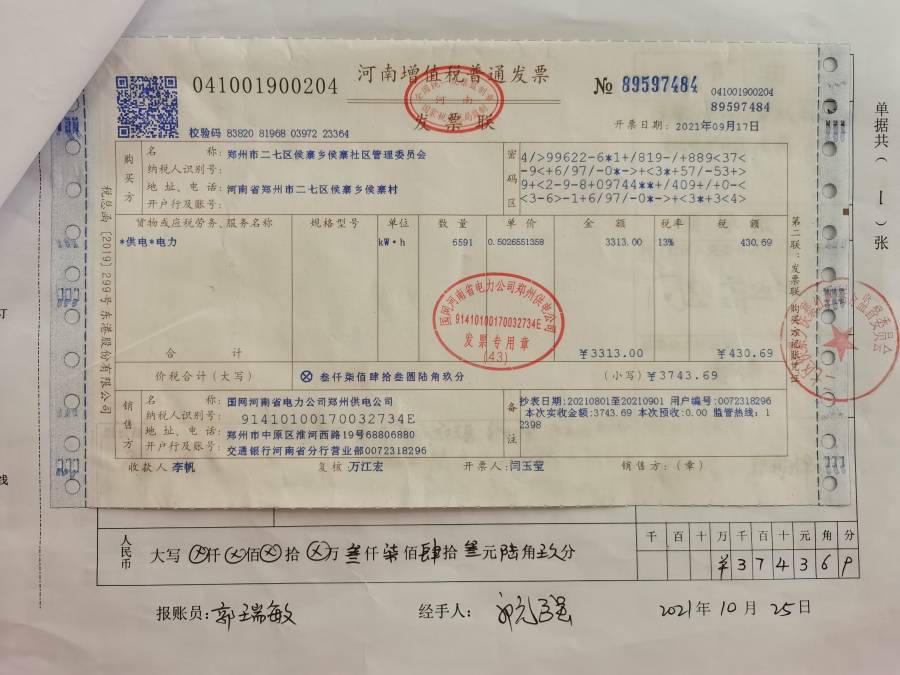 河南增值税普通发票
041001900204
№ 89597484
041001900204
89597484
发票联
开票日期：2021年09月17日
校验码 83820 81968 03972 23364
购买方
名称：郑州市二七区侯寨乡侯寨社区管理委员会
纳税人识别号：
地址、电话：河南省郑州市二七区侯寨乡侯寨村
开户行及账号：
密码区
4/>99622-6*1+/819-/+889<37<
-9<+6/97/-0*->+<3*+57/-53+>
9+<2-9-8+09744**+/409+/+0-<
<3-6>-1+6/97/-0*->+<3*+3<4>
货物或应税劳务、服务名称 规格型号 单位 数量 单价 金额 税率 税额
*供电*电力 kW·h 6591 0.5026551358 3313.00 13% 430.69
合计 ¥3313.00 ¥430.69
价税合计（大写） ⊗ 叁仟柒佰肆拾叁圆陆角玖分 （小写）¥3743.69
销售方
名称：国网河南省电力公司郑州供电公司
纳税人识别号：91410100170032734E
地址、电话：郑州市中原区淮河西路19号68806880
开户行及账号：交通银行河南省分行营业部0072318296
备注
抄表日期:20210801至20210901 用户编号:0072318296
本次实收金额:3743.69 本次预收:0.00 监管热线：1
2398
收款人 李帆 复核：万江宏 开票人：闫玉莹 销售方：（章）
国网河南省电力公司郑州供电公司
91410100170032734E
发票专用章
(43)
税总函［2019］299号东港股份有限公司
第二联：发票联 购买方记账凭证
单据共（1）张
人民币
大写 ⊗仟⊗佰⊗拾⊗万叁仟柒佰肆拾叁元陆角玖分
千 百 十 万 千 百 十 元 角 分
¥ 3 7 4 3 6 9
报账员：郭瑞敏 经手人：
2021年10月25日